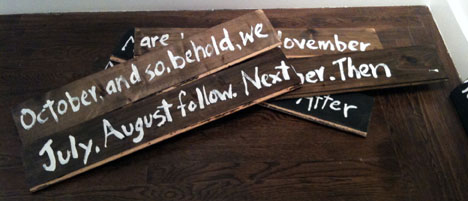 are
November
October, and so, behold, we
July, August follow. Next
ber. Then
After